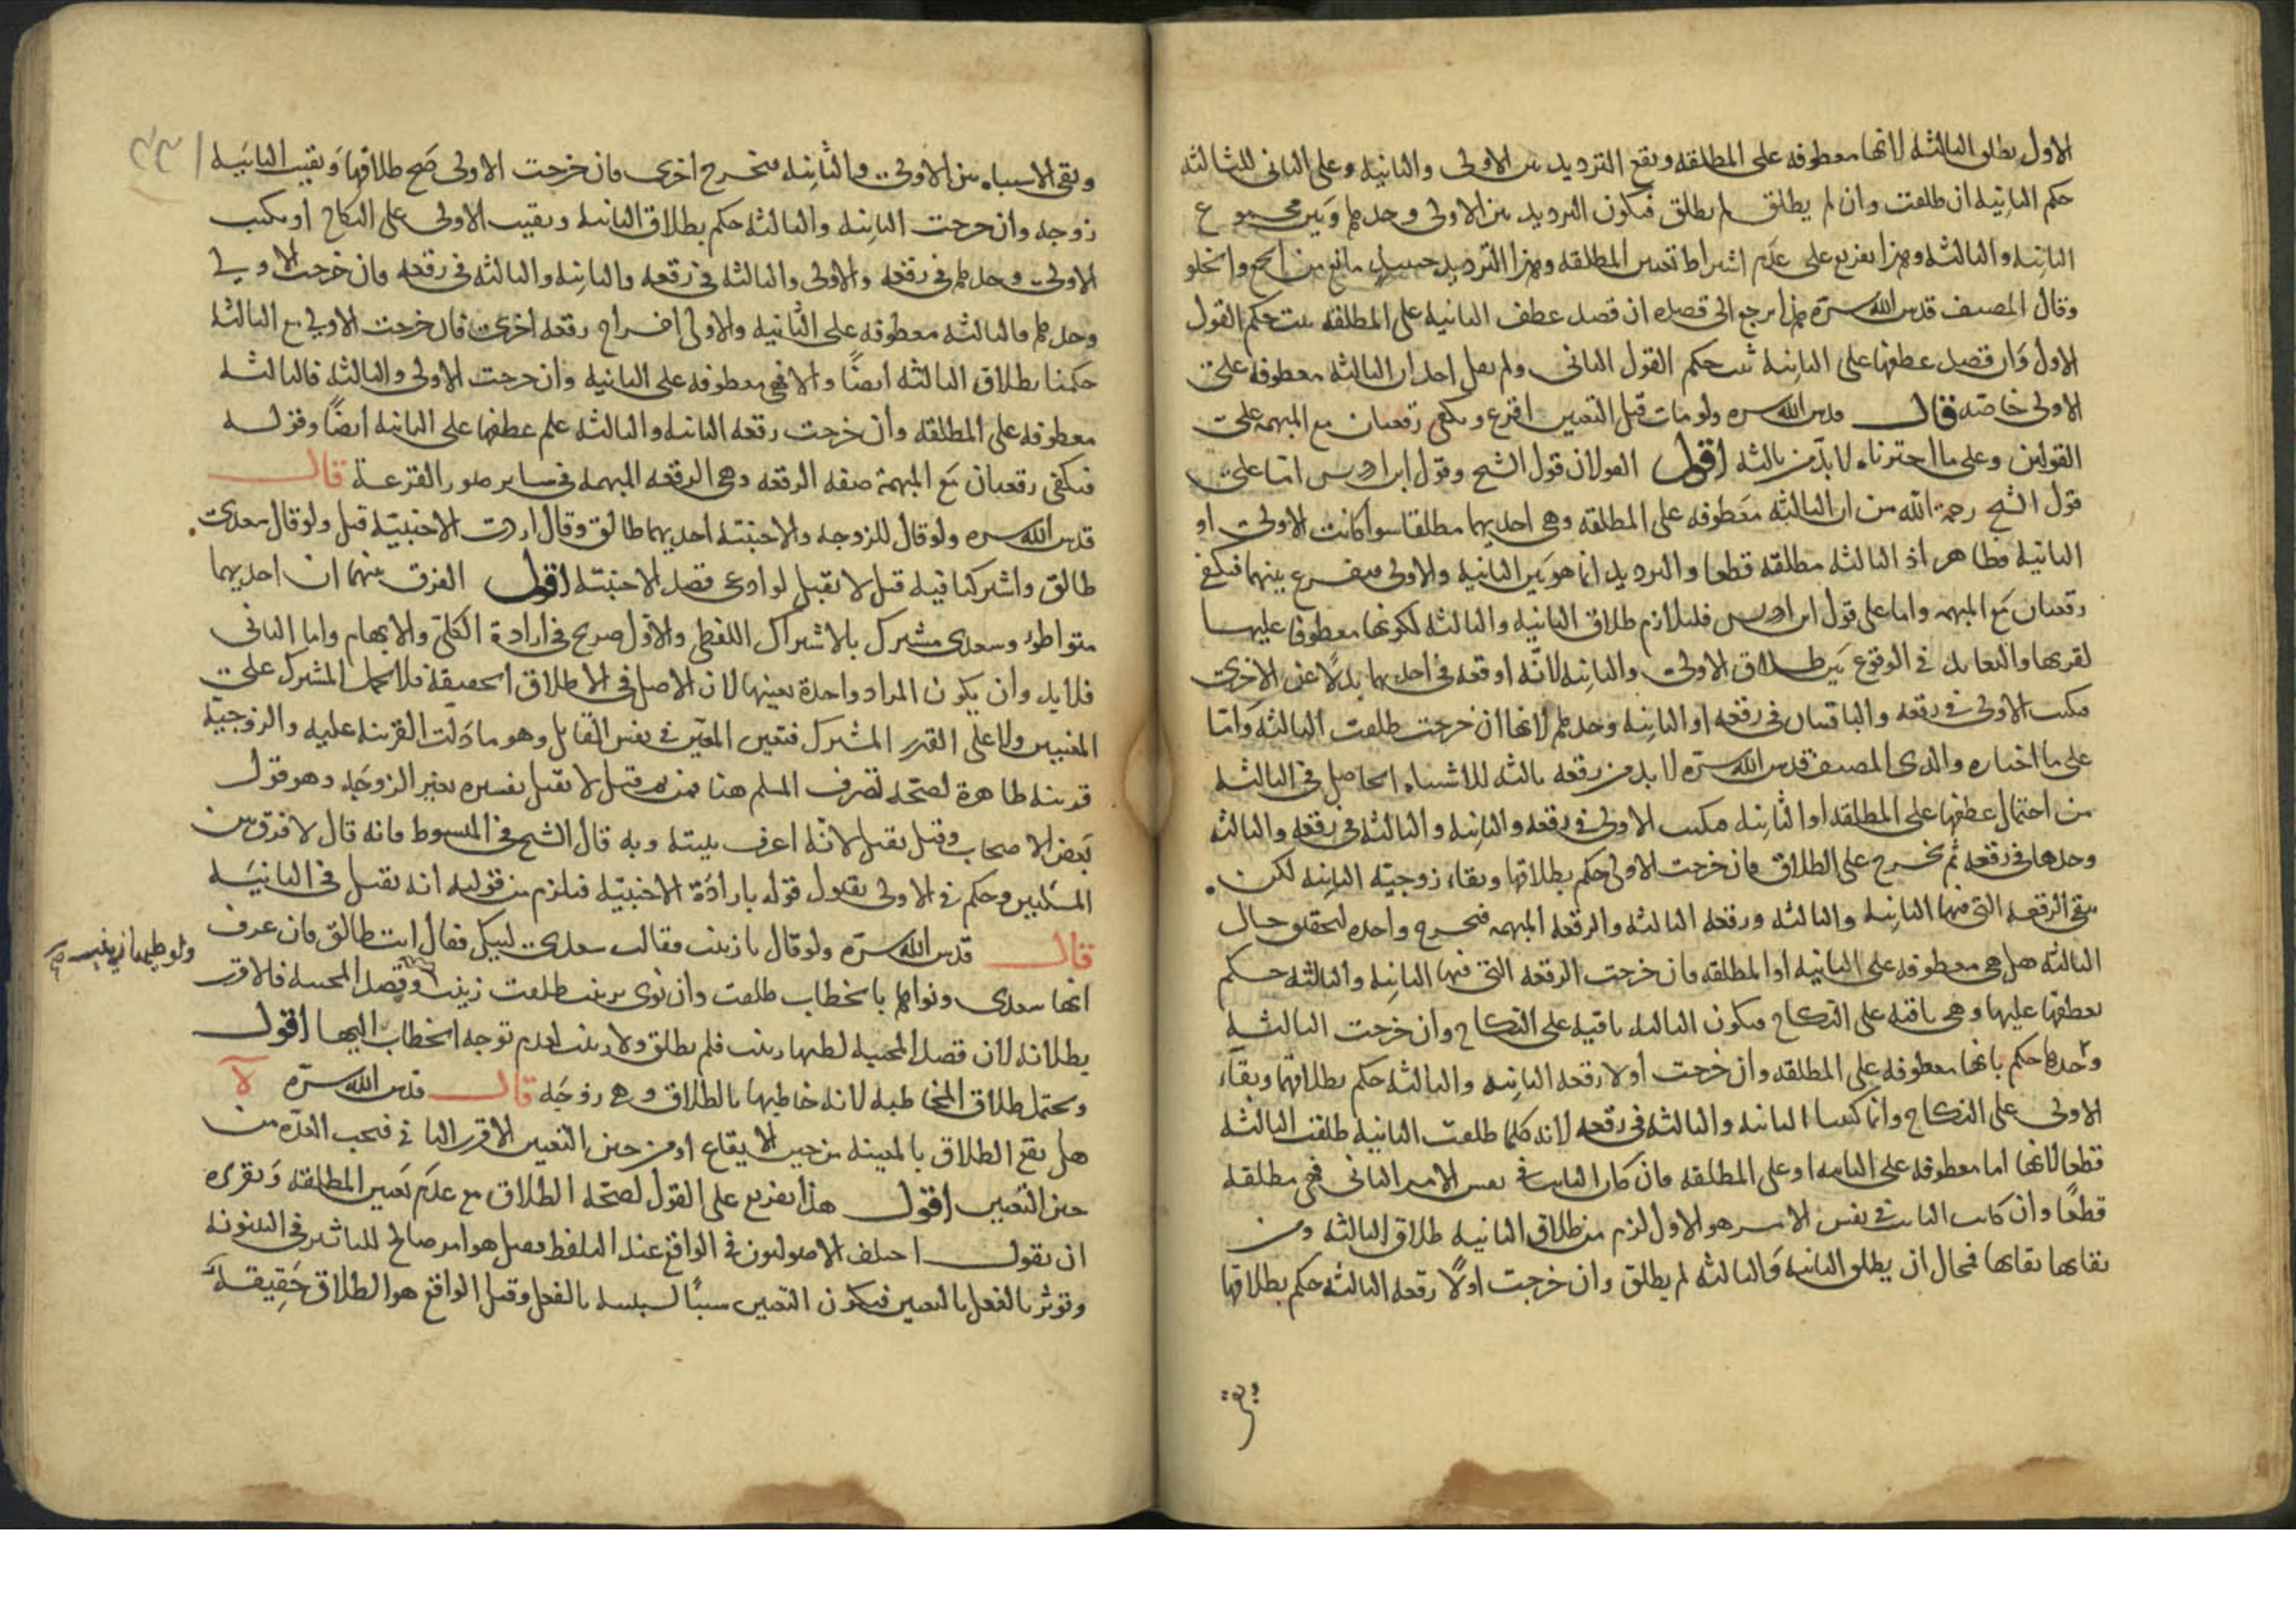 الاول يطلق الثالثه لانها معطوفه على المطلقه ويقع الترديد بين الاولى والثانيه وعلى الثانى للثالثه
حكم الثانيه ان طلقت وان لم يطلق لم يطلق فيكون الترديد بين الاولى وحدها وبين مجموع
الثانيه والثالثه وهذا تفريع على عدم اشتراط تعيين المطلقه وهذا الترديد حينئذٍ مانع من الجمع والخلو
وقال المصنف قدس الله سره هذا يرجع الى قصده ان قصد عطف الثانيه على المطلقه ثبت حكم القول
الاول وان قصد عطفها على الثانيه ثبت حكم القول الثانى ولم يقل احد ان الثالثه معطوفه على
الاولى خاصه قال قدس الله سره ولو مات قبل التعيين اقرع ويكفى رقعتان مع المبهمه على
القولين وعلى ما اخترناه لا بد من ثالثه اقول القولان قول الشيخ وقول ابن ادريس اما على
قول الشيخ رحمه الله من ان الثالثه معطوفه على المطلقه وهى احديهما مطلقا سوا كانت الاولى او
الثانيه فظاهر اذ الثالثه مطلقه قطعا والترديد انما هو بين الثانيه والاولى فيقرع بينهما فيكفى
رقعتان مع المبهمه واما على قول ابن ادريس فلتلازم طلاق الثانيه والثالثه لكونها معطوفا عليها
لقربها والتعاند فى الوقوع بين طلاق الاولى والثانيه لانه اوقعه فى احديهما بدلا عن الاخرى
فيكتب الاولى فى رقعه والباقيتان فى رقعه او الثانيه وحدها لانها ان خرجت طلقت الثالثه واما
على ما اختاره والدى المصنف قدس الله سره لا بد من رقعه ثالثه للاشتباه الحاصل فى الثالثه
من احتمال عطفها على المطلقه او الثانيه فيكتب الاولى فى رقعه والثانيه والثالثه فى رقعه والثالثه
وحدها فى رقعه ثم يخرج على الطلاق فان خرجت الاولى حكم بطلاقها وبقاء زوجيه الثانيه لكن
بقى الرقعه التى فيها الثانيه والثالثه ورقعه الثالثه والرقعه المبهمه فيخرج واحده لتحقق حال
الثالثه هل هى معطوفه على الثانيه او المطلقه فان خرجت الرقعه التى فيها الثانيه والثالثه حكم
بعطفها عليها وهى باقيه على النكاح فيكون الثالثه باقيه على النكاح وان خرجت الثالثه
وحدها حكم بانها معطوفه على المطلقه وان خرجت اولا رقعه الثانيه والثالثه حكم بطلاقهما وبقاء
الاولى على النكاح وانما كتبنا الثانيه والثالثه فى رقعه لانه كلما طلقت الثانيه طلقت الثالثه
قطعا لانها اما معطوفه على الثانيه او على المطلقه فان كان الثابت فى نفس الامر الثانى فهى مطلقه
قطعًا وان كانت الثابت فى نفس الامر هو الاول لزم من طلاق الثانيه طلاق الثالثه ومن
بقاها بقاها فمحال ان يطلق الثانيه والثالثه لم يطلق وان خرجت اولًا رقعه الثالثه حكم بطلاقها
وبقى الاشتباه بين الاولى والثانيه فيخرج اخرى فان خرجت الاولى صح طلاقها وبقيت الثانيه
زوجه وان خرجت الثانيه والثالثه حكم بطلاق الثانيه وبقيت الاولى على النكاح او يكتب
الاولى وحدها فى رقعه والاولى والثالثه فى رقعه والثانيه والثالثه فى رقعه فان خرجت الاولى
وحدها فالثالثه معطوفه على الثانيه والاولى اخراج رقعه اخرى فان خرجت الاولى مع الثالثه
حكمنا بطلاق الثالثه ايضًا والا فهى معطوفه على الثانيه وان خرجت الاولى والثالثه فالثالثه
معطوفه على المطلقه وان خرجت رقعه الثانيه والثالثه علم عطفها على الثانيه ايضًا وقوله
فيكفى رقعتان مع المبهمة صفه الرقعه وهى الرقعه المبهمه فى ساير صور القرعة قال
قدس الله سره ولو قال للزوجه والاجنبيه احديهما طالق وقال اردت الاجنبيه قبل ولو قال سعدى
طالق واشتركتا فيه قيل لا تقبل لو ادعى قصد الاجنبيه اقول الفرق بينهما ان احديهما
متواطئ وسعدى مشترك بالاشتراك اللفظى والاول صريح فى ارادة الكلى والابهام واما الثانى
فلا بد وان يكون المراد واحدة بعينها لان الاصل فى الاطلاق الحقيقه فلا يحمل المشترك على
المعنيين ولا على القدر المشترك فتعين المعين فى نفس القايل وهو ما دلت القرينه عليه والزوجيه
قرينه ظاهرة لصحه تصرف المسلم هنا فمن ثم قيل لا تقبل تفسيره بغير الزوجه وهو قول
بعض الاصحاب وقيل يقبل لانه اعرف بنيته وبه قال الشيخ فى المبسوط فانه قال لا فرق بين
المسئلتين وحكم فى الاولى بقبول قوله بارادة الاجنبيه فيلزم من قوليه انه يقبل فى الثانيه
قال قدس الله سره ولو قال يا زينب فقالت سعدى لبيك فقال انت طالق فان عرف
انها سعدى ونواها بالخطاب طلقت وان نوى زينب طلقت زينب وقصد المجيبه فلا قرب
بطلانه لان قصد المجيبه لظنها زينب فلم يطلق ولا زينب لعدم توجه الخطاب اليها اقول
ويحتمل طلاق المخاطبه لانه خاطبها بالطلاق وهى زوجه قال قدس الله سره لا
هل يقع الطلاق بالمعينه من حين الايقاع او من حين التعيين الاقرب الثانى فيجب العده من
حين التعيين اقول هذا تفريع على القول لصحه الطلاق مع عدم تعيين المطلقه وتقريره
ان نقول اختلف الاصوليون فى الواقع عند التلفظ فقيل هو امر صالح للتاثير فى البينونه
ويؤثر بالفعل بالتعيين فيكون التعيين سببًا لسببيه بالفعل وقيل الواقع هو الطلاق حقيقه